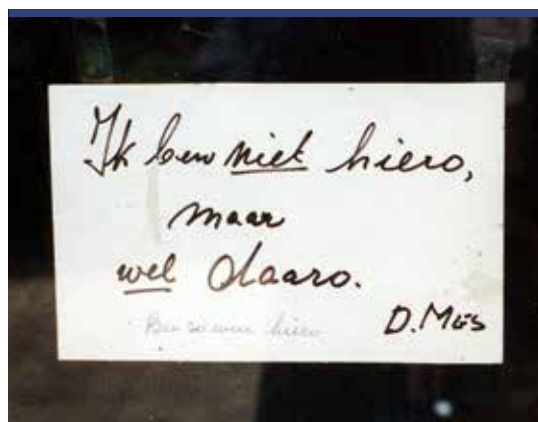 Ik ben niet hiero,
maar
wel daaro.
D. MES
Ben zo weer hiero